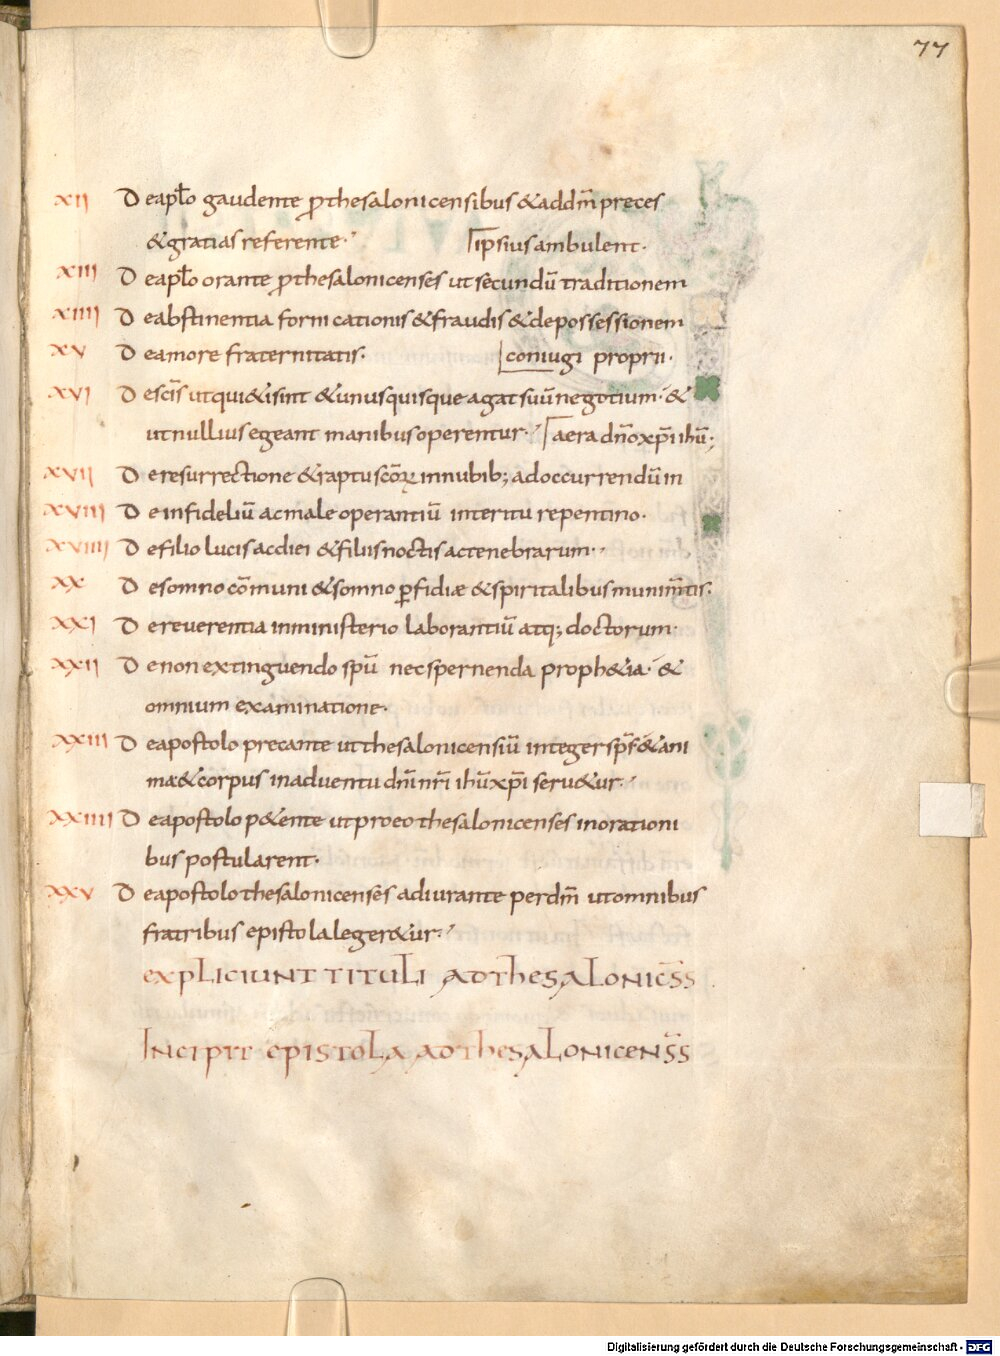 77
XII De aplo gaudente ꝓ thesalonicensibus & ad dm̄ preces
& gratias referente. ipsius ambulent.
XIII De aplo orante ꝓ thesalonicenses ut secundū traditionem
XIIII De abstinentia fornicationis & fraudis & de possessionem
XV De amore fraternitatis. coniugi proprii.
XVI De scīs ut qui&i sint & unusquisque agat suū negotium. &
ut nullius egeant manibus operentur. aera dn̄o xp̄i ihū;
XVII De resurrectione & raptu scōꝝ in nubib; ad occurrendū in
XVIII De infideliū ac male operantiū interitu repentino.
XVIIII De filio lucis ac diei & filiis noctis ac tenebrarum.
XX De somno cōmuni & somno ꝑfidiæ & spiritalibus munim̄tis.
XXI De reverentia in ministerio laborantiū atq; doctorum.
XXII De non extinguendo spū nec spernenda proph&ia. &
omnium examinatione.
XXIII De apostolo precante ut thesalonicensiū integer sp̄s & ani
ma & corpus in adventu dn̄i nr̄i ihū xp̄i serv&ur.
XXIIII De apostolo p&ente ut pro eo thesalonicenses in orationi
bus postularent.
XXV De apostolo thesalonicenses adiurante per dm̄ ut omnibus
fratribus epistola leger&ur.
EXPLICIUNT TITULI AD THESALONICS̄S
INCIPIT EPISTOLA AD THESALONICENS̄S
Digitalisierung gefördert durch die Deutsche Forschungsgemeinschaft - DFG